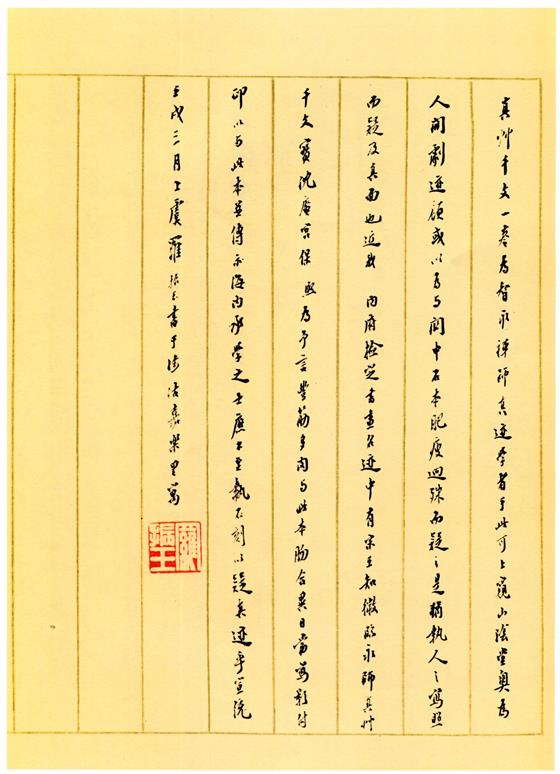 真艸千文一卷為智永禪師真迹學者于此可上窺山陰堂奧為
人間劇迹顧或以其與關中石本肥瘦迥殊而疑之是猶執人之寫照
而疑及真面也近我 內府檢定書畫名迹中有宋王知微臨永師真艸
千文寶沈盦宮保 熙為予言豐筋多肉與此本脗合異日當寫影付
印以與此本並傳示海內承學之士應不至執石刻以疑真迹乎宣統
壬戌三月上虞羅振玉書于津沽嘉樂里寓
羅振玉